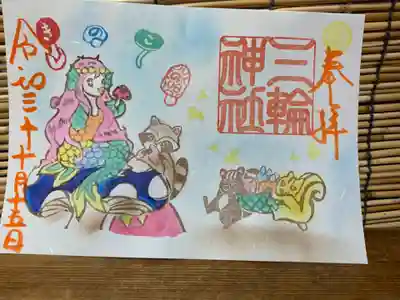 奉拝
三輪
神社
き
の
こ
令和三年十月十五日